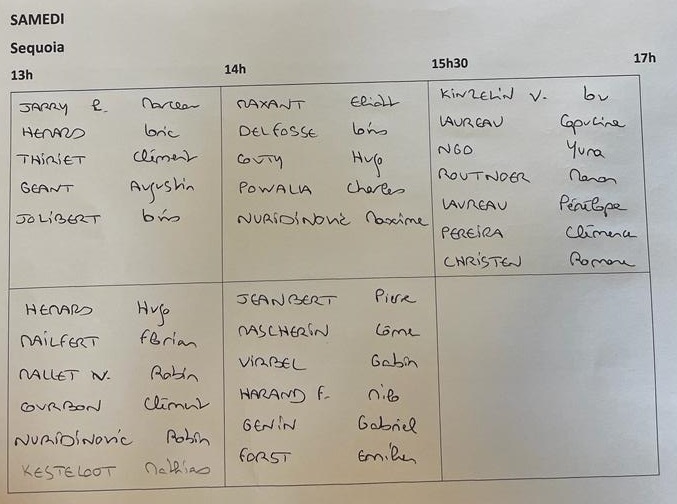 SAMEDI
Sequoia
13h 14h 15h30 17h
JARRY Marceau
HENARD
THIRIET Clément
GEANT Augustin
JOLIBERT Loris
MAXANT Eliott
DELFOSSE Loris
COUTY Hugo
POWALIA Charles
NURIDINOVIC Maxime
KINZELIN V. Lou
LAUREAU Capucine
NGO Yuna
Manon
LAUREAU Pénélope
PEREIRA Clémence
CHRISTEN Romane
HENARD Hugo
MAILFERT Florian
MALLET N. Robin
COURBON Clément
NURIDINOVIC Robin
KESTELOOT Mathias
JEANBERT Pierre
MASCHERIN Côme
VIRBEL Gabin
HARAND F. Nilo
GENIN Gabriel
FORST Emilien